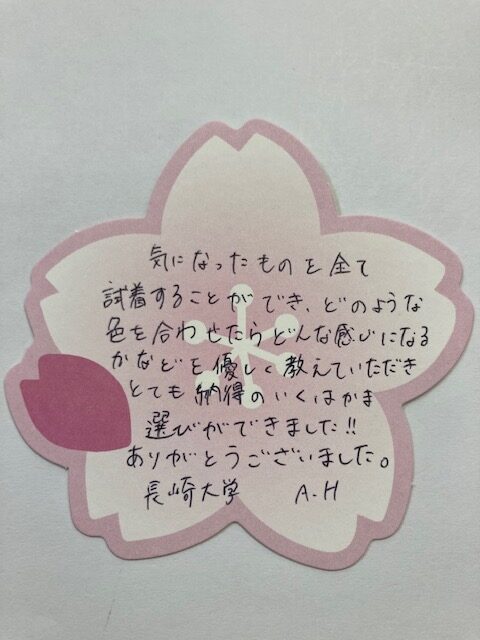 気になったものを全て
試着することができ、どのような
色を合わせたらどんな感じになる
かなどを優しく教えていただき
とても納得のいくはかま
選びができました!!
ありがとうございました。
長崎大学 A-H